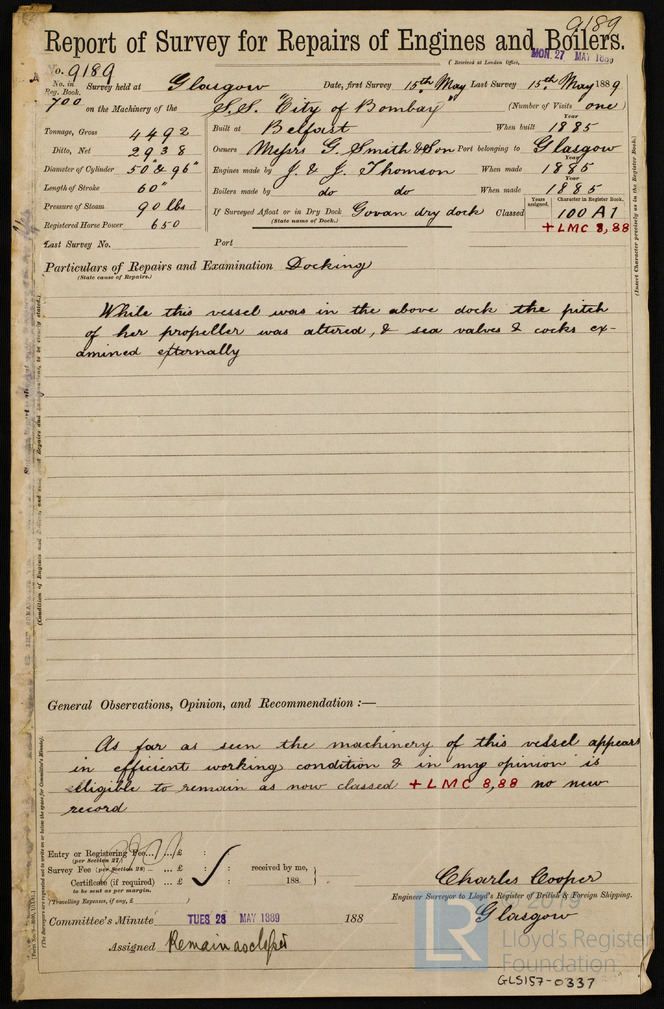 9189
Report of Survey for Repairs of Engines and Boilers.
(Received at London Office, MON. 27 MAY 1889
No. 9189
No. in Reg. Book. Survey held at Glasgow Date, first Survey 15th May Last Survey 15th May 1889
700 on the Machinery of the S.S. "City of Bombay" (Number of Visits one)
Tonnage, Gross 4492 Built at Belfast When built Year 1885
Ditto, Net 2938 Owners Messrs G. Smith & Son Port belonging to Glasgow
Diameter of Cylinder 50" & 96" Engines made by J. & J. Thomson When made Year 1885
Length of Stroke 60" Boilers made by do do When made Year 1885
Pressure of Steam 90 lbs If Surveyed Afloat or in Dry Dock Govan dry dock Classed Years assigned. Character in Register Book. 100 A1
(State name of Dock.)
Registered Horse Power 650 +LMC 8,88
Last Survey No. Port
Particulars of Repairs and Examination Docking
(State cause of Repairs.)
While this vessel was in the above dock the pitch
of her propeller was altered, & sea valves & cocks ex-
amined externally
(Insert Character precisely as in the Register Book.)
General Observations, Opinion, and Recommendation :—
As far as seen the machinery of this vessel appears
in efficient working condition & in my opinion is
eligible to remain as now classed +LMC 8,88 no new
record
Entry or Registering Fee... £ : :
(per Section 27)
Survey Fee (per Section 28) ... £ : : received by me,
Certificate (if required) ... £ : : 188.
to be sent as per margin.
(Travelling Expenses, if any, £ )
Charles Cooper
Engineer Surveyor to Lloyd's Register of British & Foreign Shipping.
Glasgow
Committee's Minute TUES 28 MAY 1889 188
Assigned Remain as classed
LR
© 2019
Lloyd's Register
Foundation
GLS157-0337